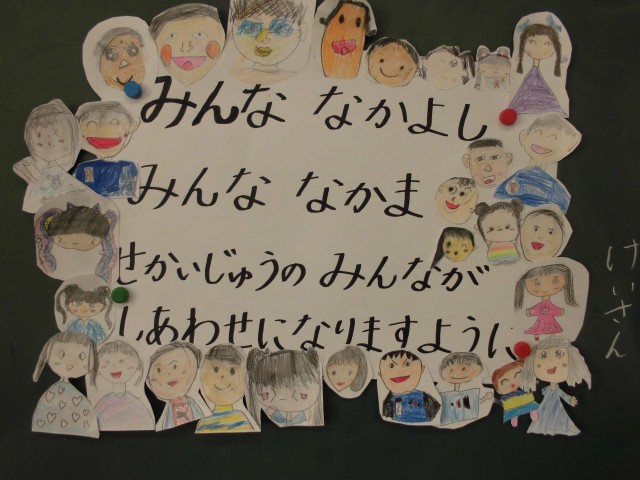 みんな なかよし
みんな なかま
せかいじゅうの みんなが
しあわせになりますように
けいさん